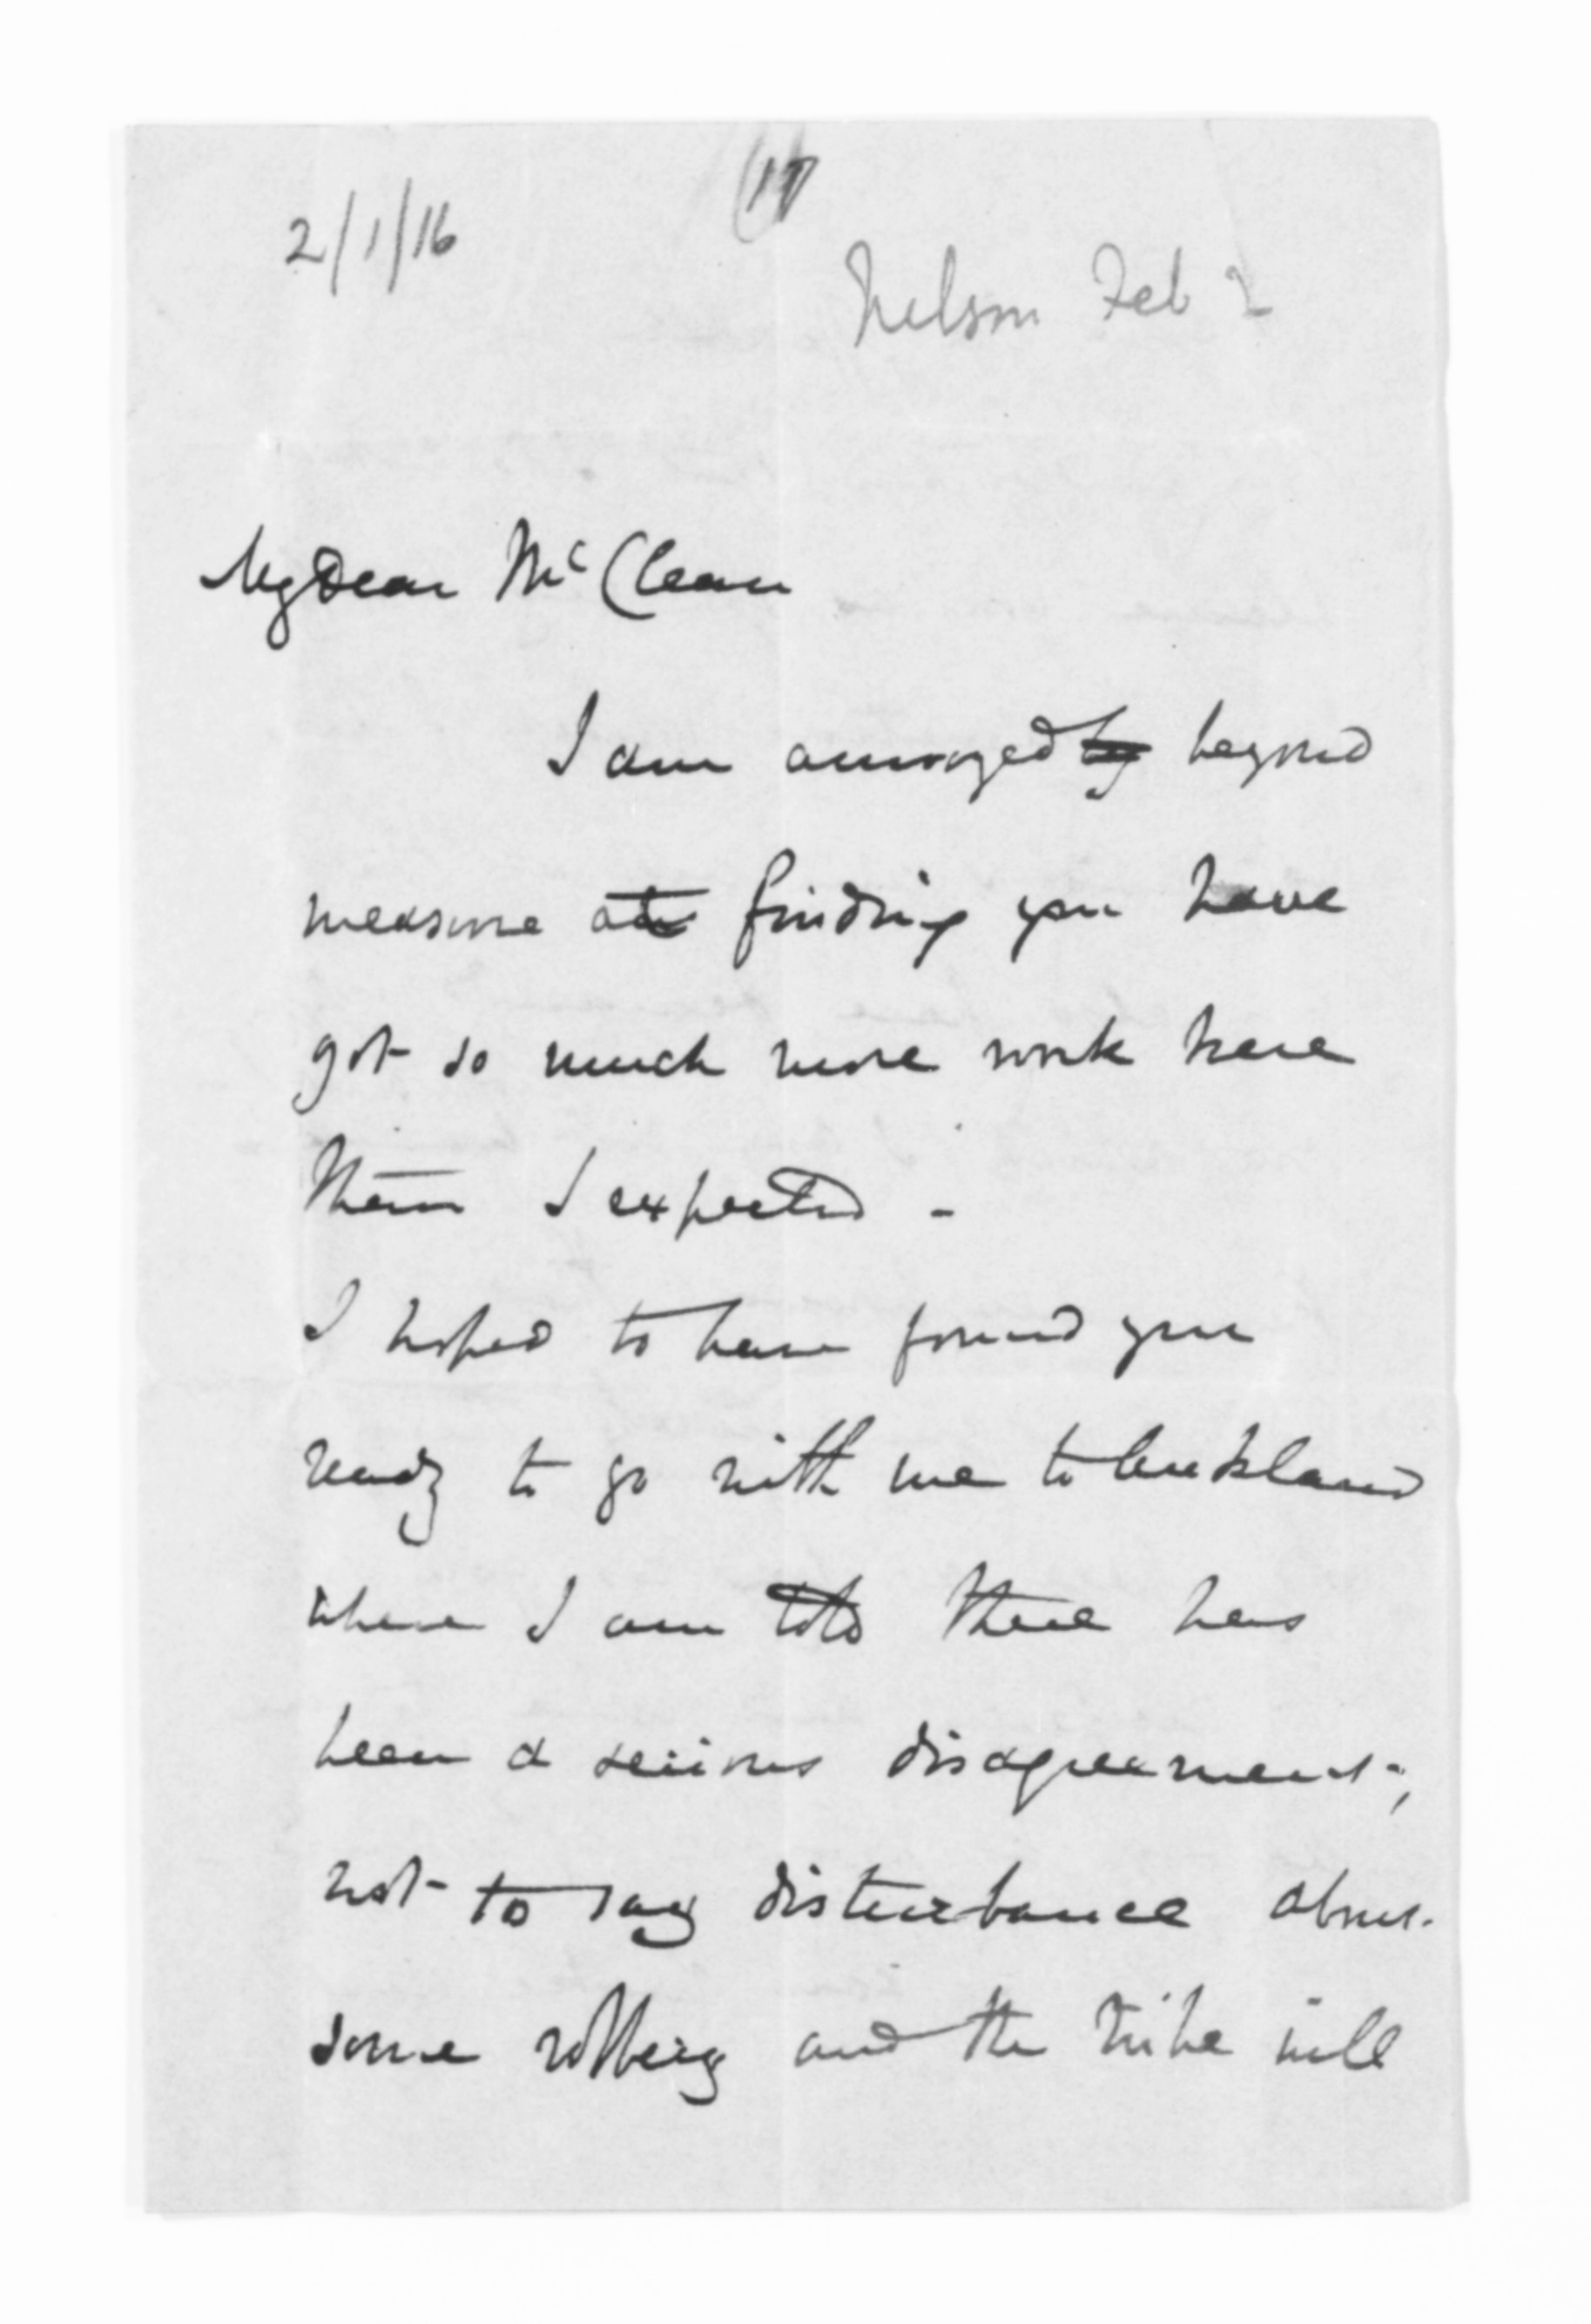 2/1/16
Nelson Feb 2
My Dear McClean
I am annoyed by beyond
measure at finding you have
got so much more work here
than I expected -
I hoped to have found you
ready to go with me to Auckland
where I am told there has
been a serious disagreement,
not to say disturbance about
some robbery and the tribe will